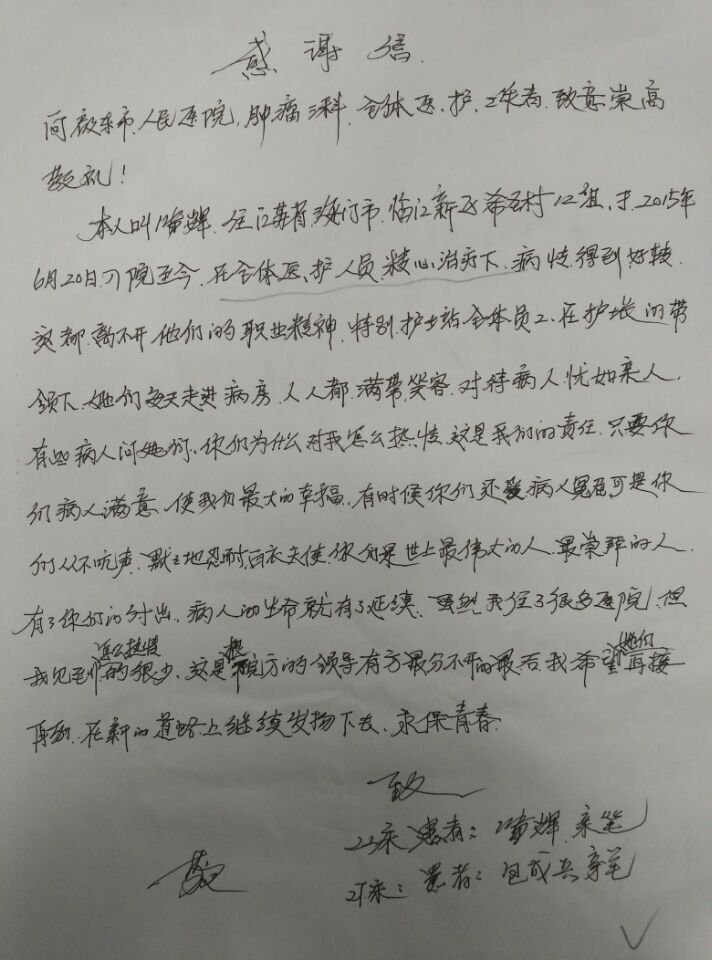 感谢信
向启东市人民医院,肿瘤三科,全体医、护、工作者、致意崇高
敬礼!
本人叫 辉,住江苏省海门市,临江新区希 村12组,于2015年
6月20日入院至今,在全体医、护人员精心治疗下、病情得到好转
这都离不开他们的职业精神,特别护士站全体员工、在护士长的带
领下,她们每天走进病房,人人都满带笑容,对待病人,忧如亲人,
有些病人问她们、你们为什么对我怎么热情,这是我们的责任,只要你
们病人满意、使我们最大的幸福,有时候你们还受病人冤屈可是你
们从不吭声,默默地忍耐,白衣天使,你们是世上最伟大的人,最崇拜的人,
有了你们的付出,病人的生命就有了延续,虽然我住了很多医院,但
我见到怎么热情的很少,这是 院方的领导有方最分不开的最后我希望她们再接
再励,在新的道路上继续发扬下去,永保青春.
致
22床患者: 辉 亲笔
敬
21床:患者: 成兵亲笔